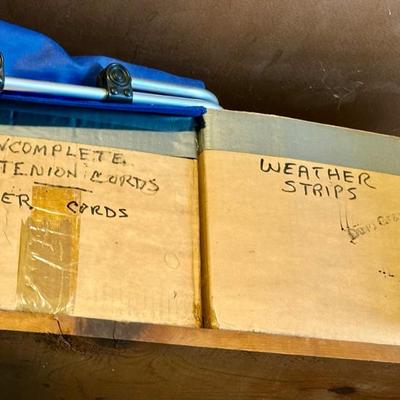 NCOMPLETE
TENION CORDS
ER CORDS
WEATHER
STRIPS